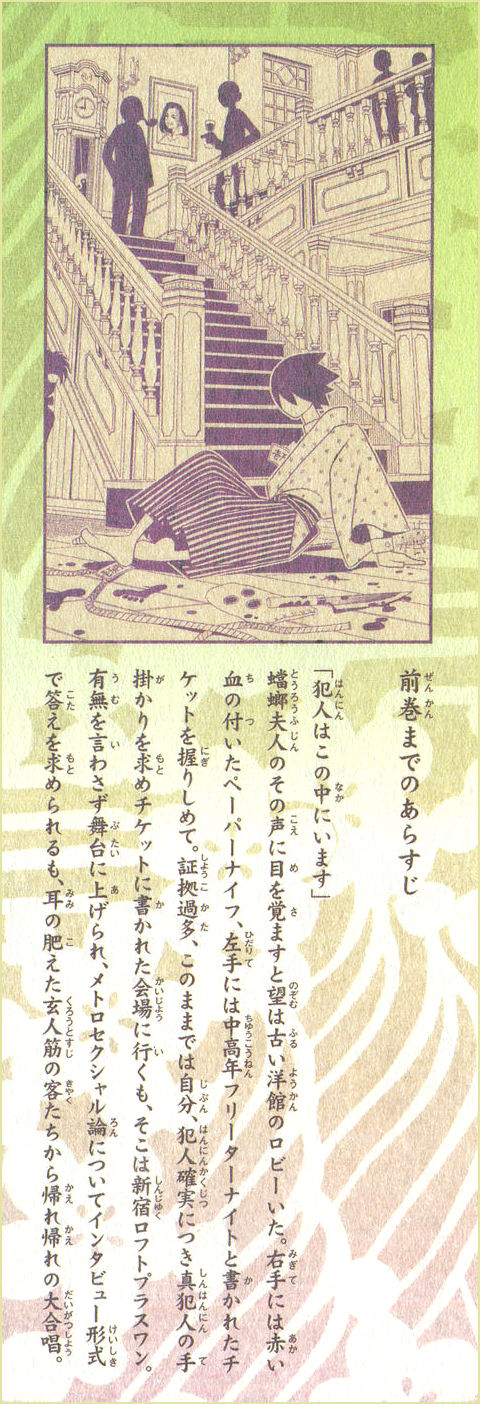 前巻までのあらすじ
「犯人はこの中にいます」
蟷螂夫人のその声に目を覚ますと望は古い洋館のロビーいた。右手には赤い
血の付いたペーパーナイフ、左手には中高年フリーターナイトと書かれたチ
ケットを握りしめて。証拠過多、このままでは自分、犯人確実につき真犯人の手
掛かりを求めチケットに書かれた会場に行くも、そこは新宿ロフトプラスワン。
有無を言わさず舞台に上げられ、メトロセクシャル論についてインタビュー形式
で答えを求められるも、耳の肥えた玄人筋の客たちから帰れ帰れの大合唱。